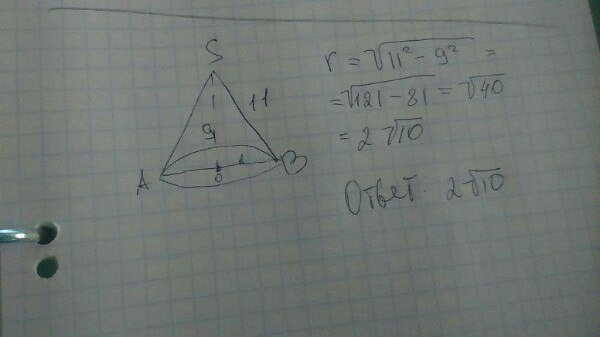 S
11
9
A
O
B
r = √11² - 9² =
= √121 - 81 = √40
= 2√10
Ответ. 2√10